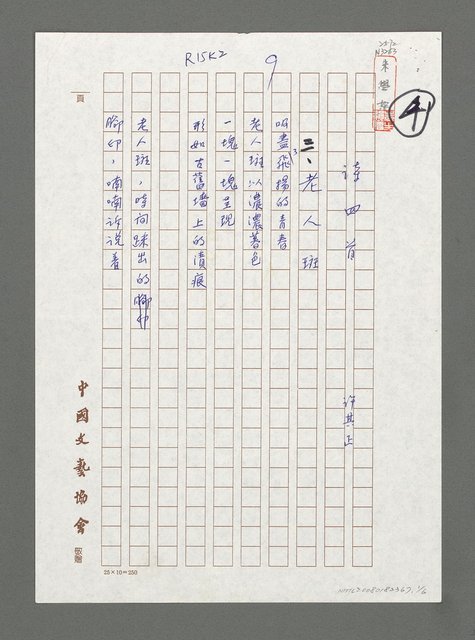 R15K2
9
詩四首
許其正
三、老人斑
吸盡飛揚的青春
老人斑以濃濃著色
一塊一塊呈現
形如古舊墻上的漬痕
老人斑，時間踩出的腳印
腳印，喃喃訴說着
頁
中國文藝協會
敬贈
25×10=250